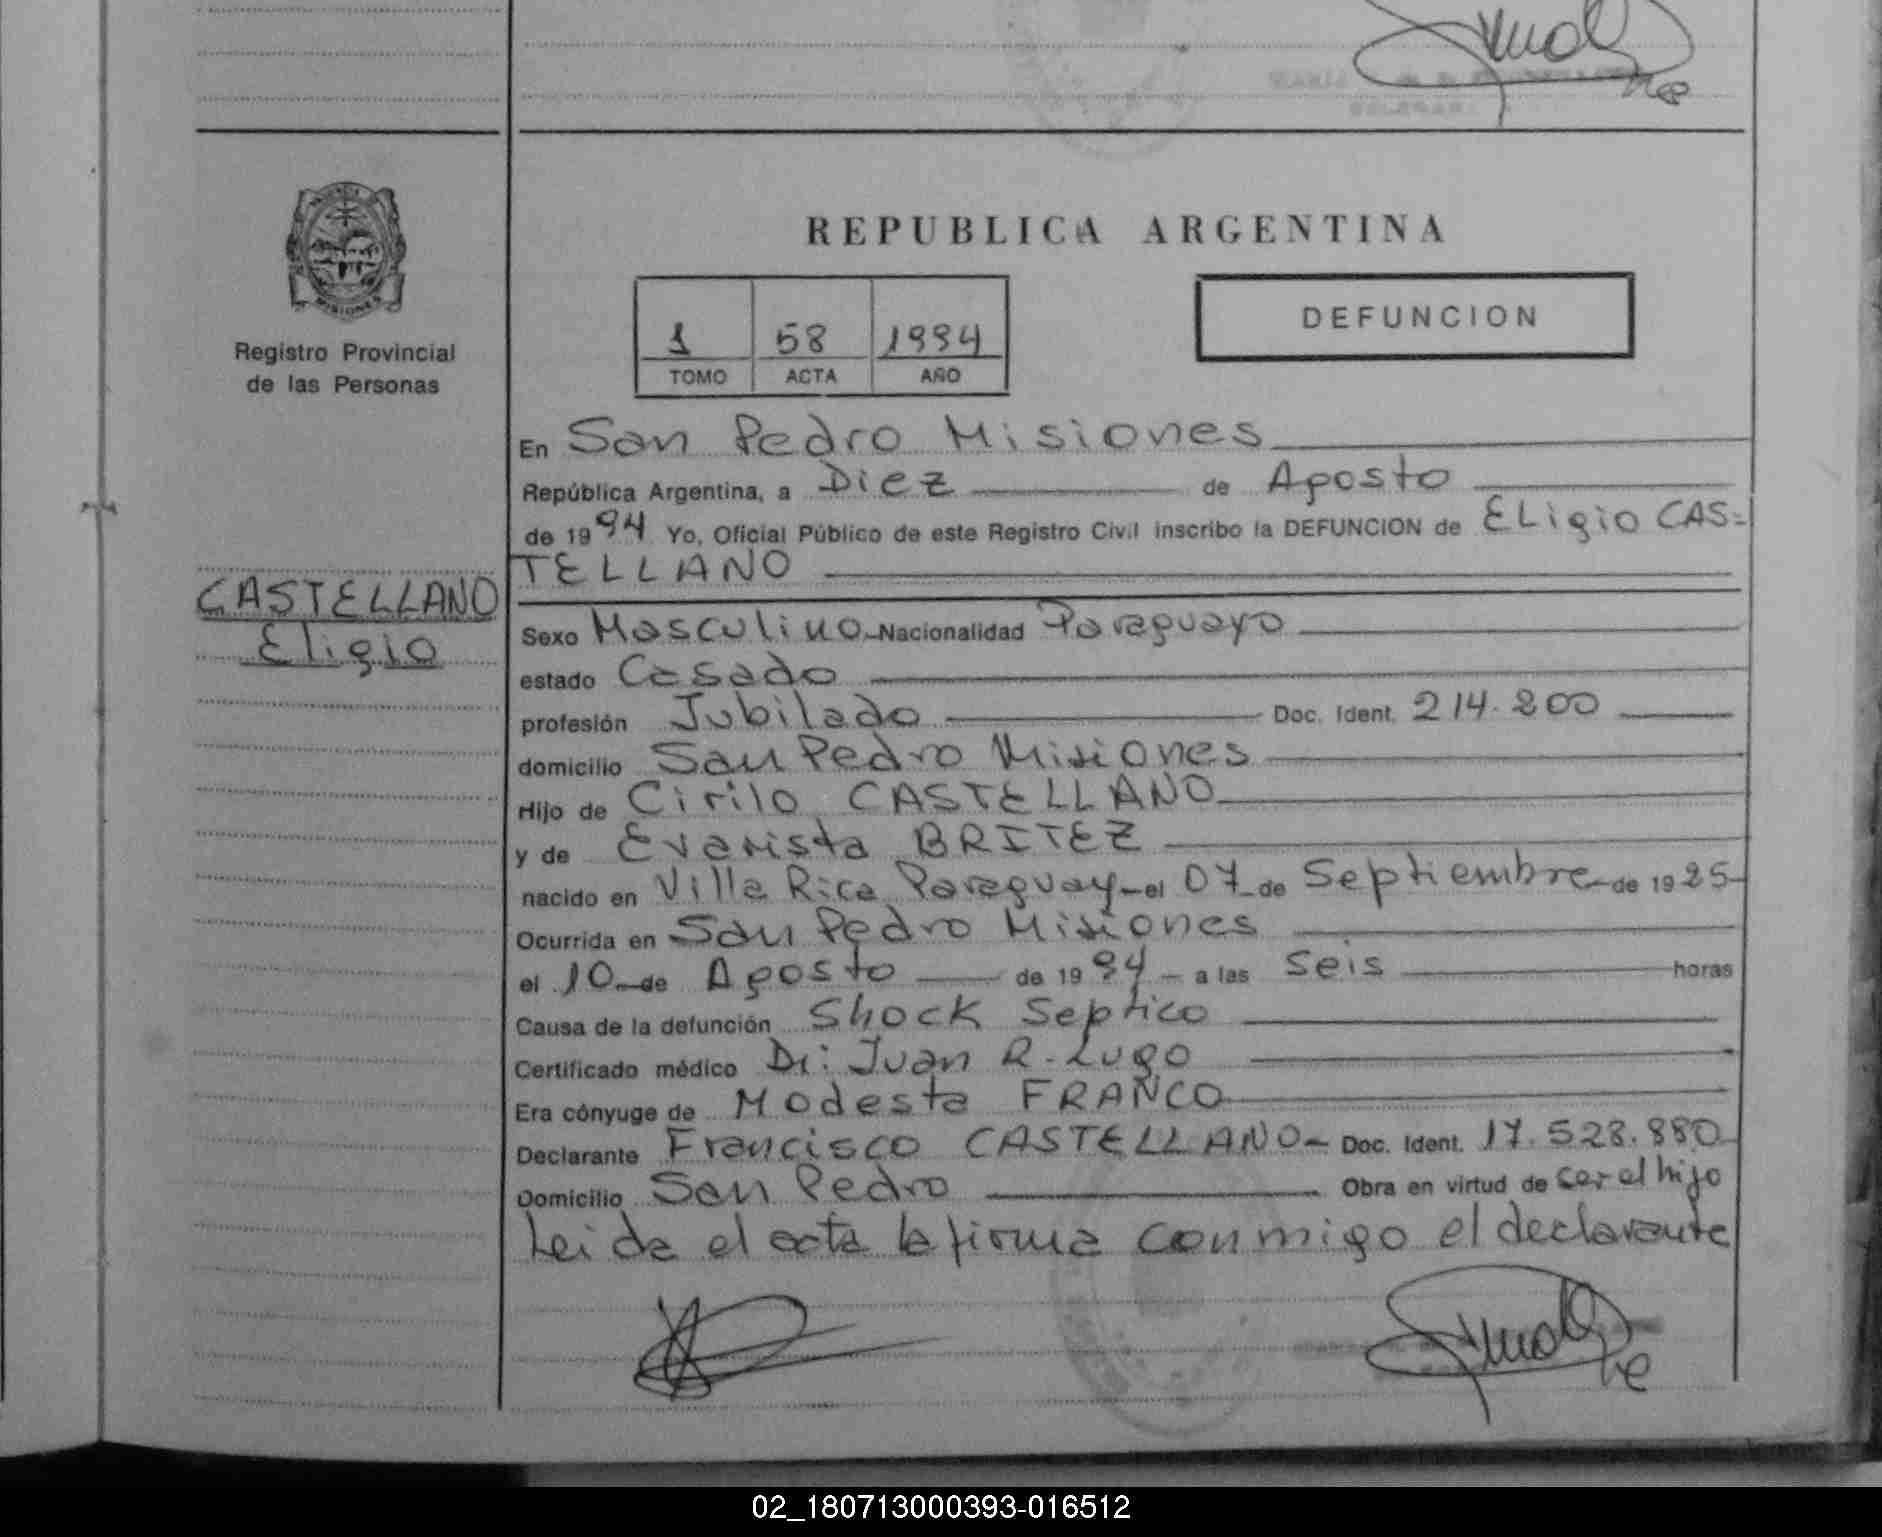 REPUBLICA ARGENTINA
MISIONES
Registro Provincial
de las Personas
1 58 1994
TOMO ACTA AÑO
DEFUNCION
En San Pedro Misiones
República Argentina, a Diez de Agosto
de 1994 Yo, Oficial Público de este Registro Civil inscribo la DEFUNCION de Eligio CAS=
TELLANO
CASTELLANO
Eligio
Sexo Masculino Nacionalidad Paraguayo
estado Casado
profesión Jubilado Doc. Ident. 214.200
domicilio San Pedro Misiones
Hijo de Cirilo CASTELLANO
y de Evarista BRITEZ
nacido en Villa Rica Paraguay el 07 de Septiembre de 1925
Ocurrida en San Pedro Misiones
el 10 de Agosto de 1994 a las Seis horas
Causa de la defunción Shock Septico
Certificado médico Dr: Juan R. Lugo
Era cónyuge de Modesta FRANCO
Declarante Francisco CASTELLANO Doc. Ident. 17.528.880
Domicilio San Pedro Obra en virtud de ser el hijo
Leida el acta la firma conmigo el declarante
02_180713000393-016512